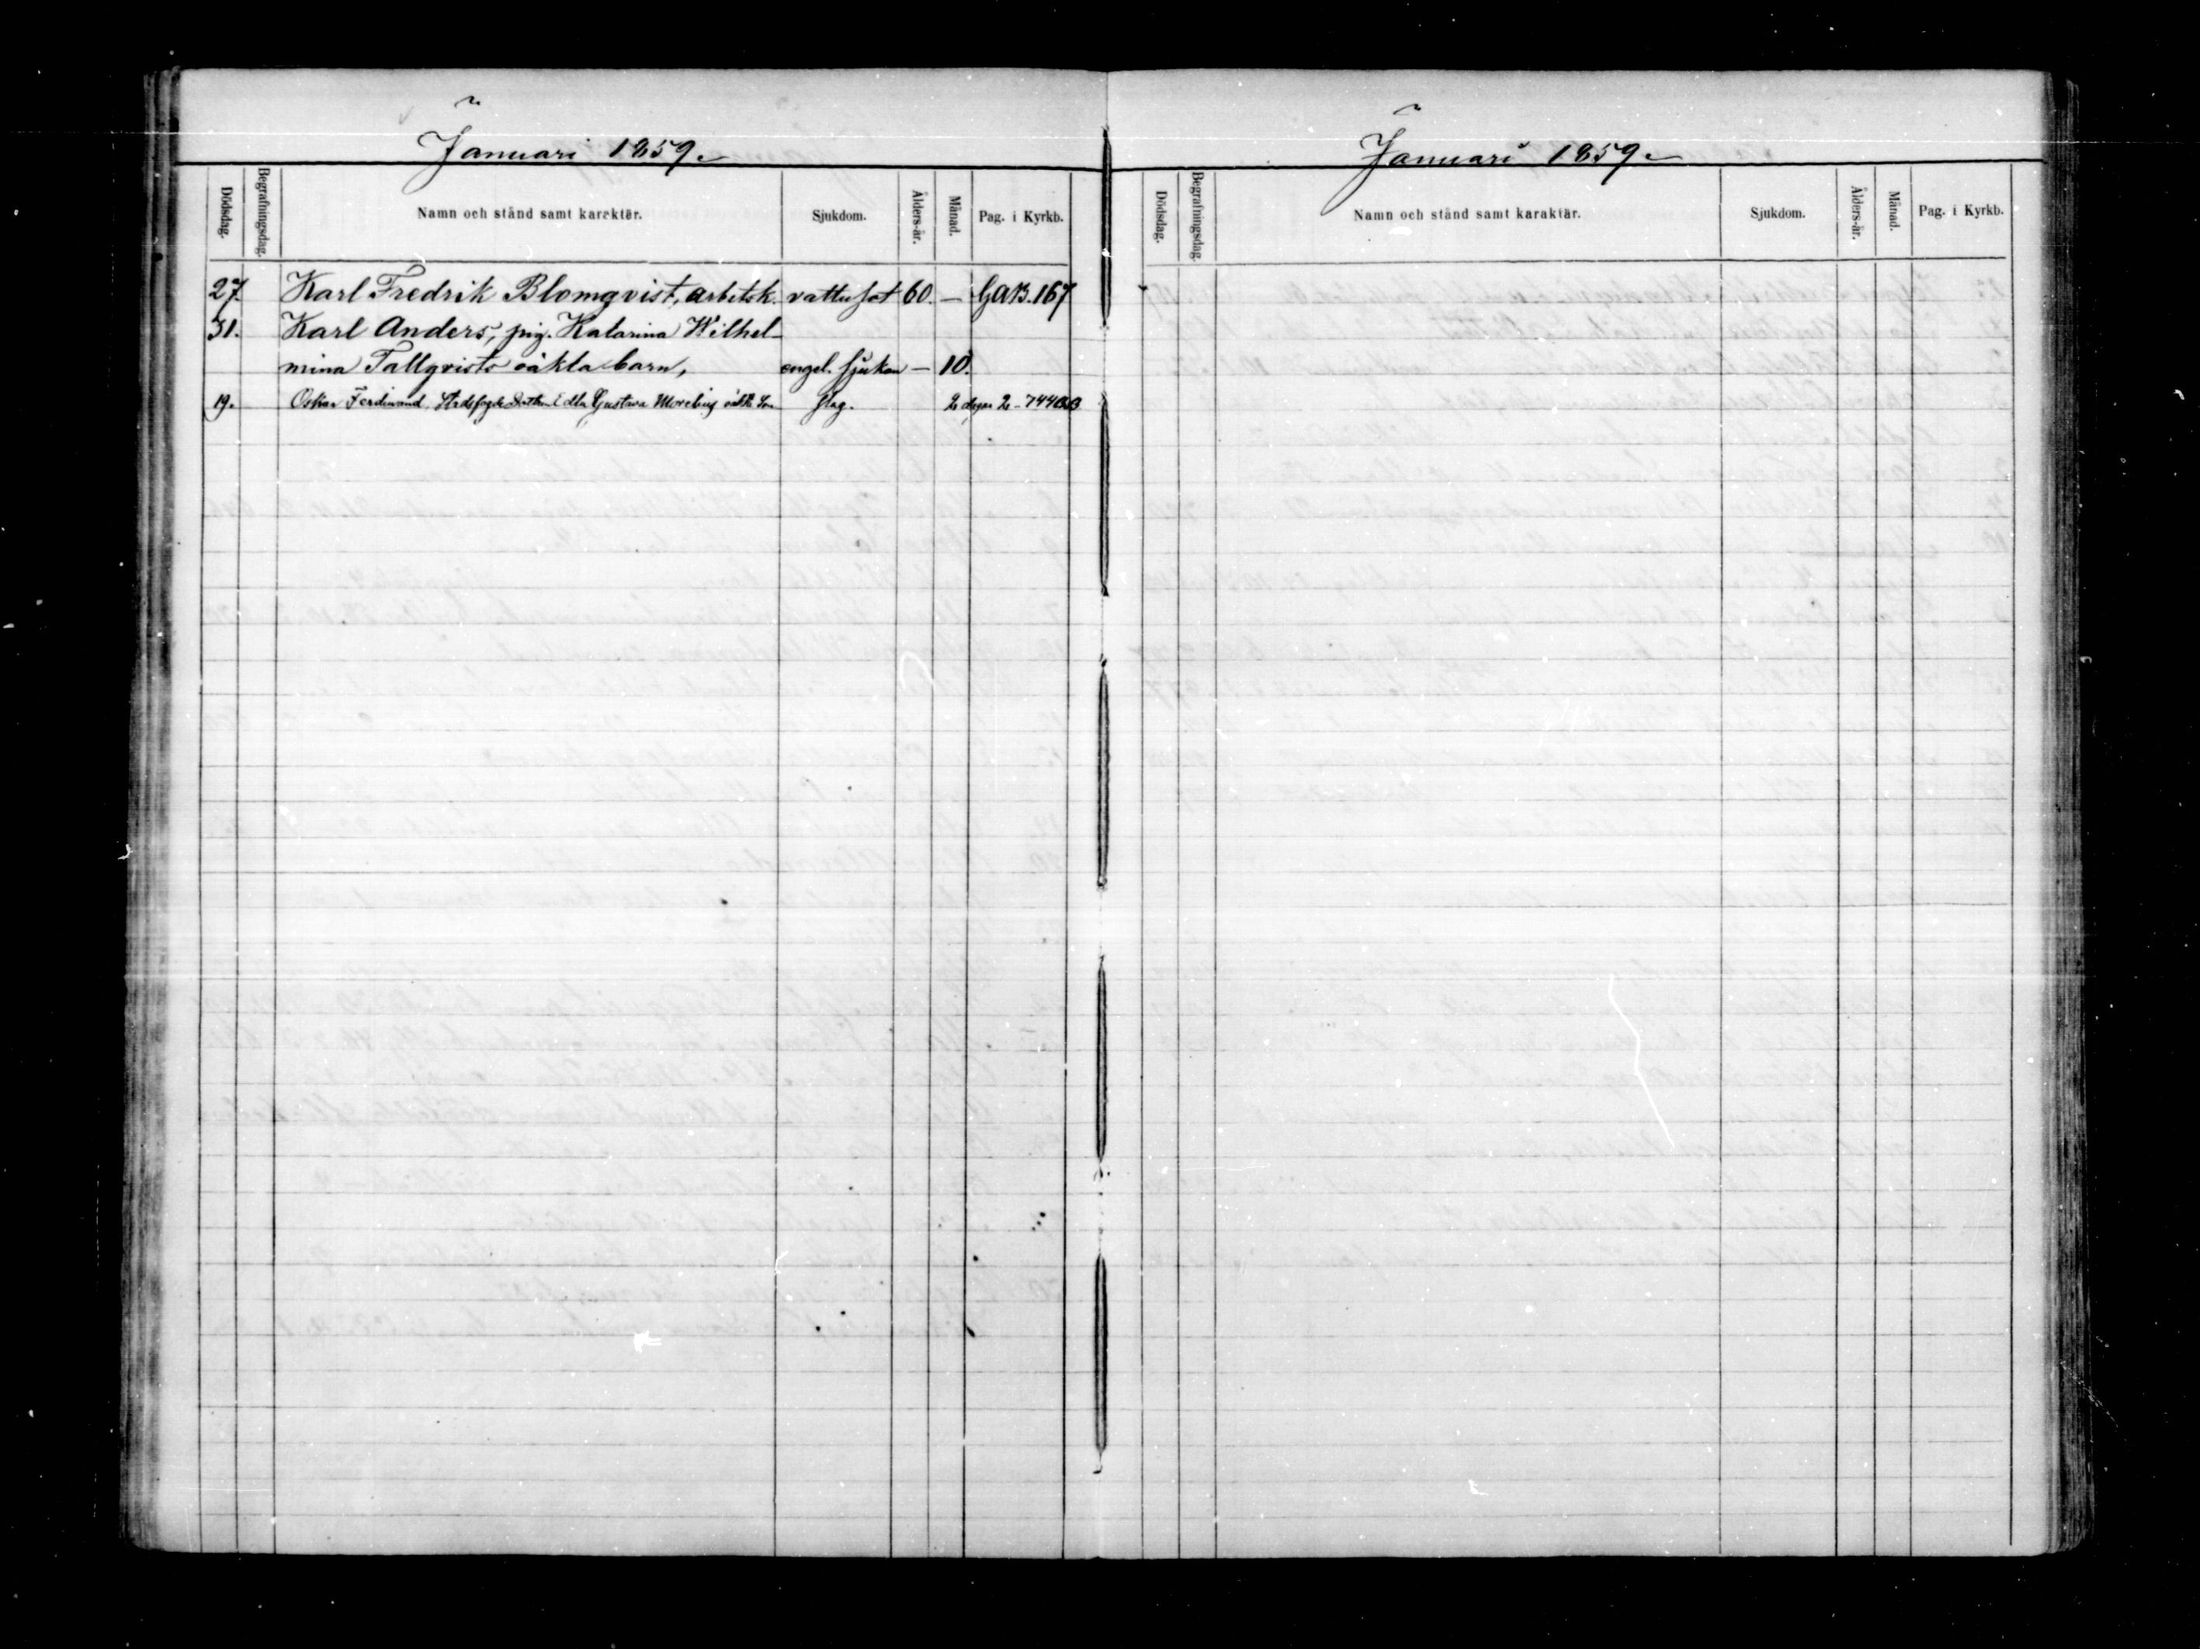 Januari 1859.
Dödsdag. Begrafningsdag. Namn och stånd samt karaktär. Sjukdom. Ålders-år. Månad. Pag. i Kyrkb.
27. Karl Fredrik Blomqvist, arbetsk. vattusot 60. — GAB. 167
31. Karl Anders, pig. Katarina Wilhel-
mina Tallqvists oäkta barn, engel. sjukan — 10.
19. Oskar Ferdinand, Stadsfogde Edla Gustava oäkta Son slag. 2 dagar 2-744
Januari 1859.
Dödsdag. Begrafningsdag. Namn och stånd samt karaktär. Sjukdom. Ålders-är. Månad. Pag. i Kyrkb.